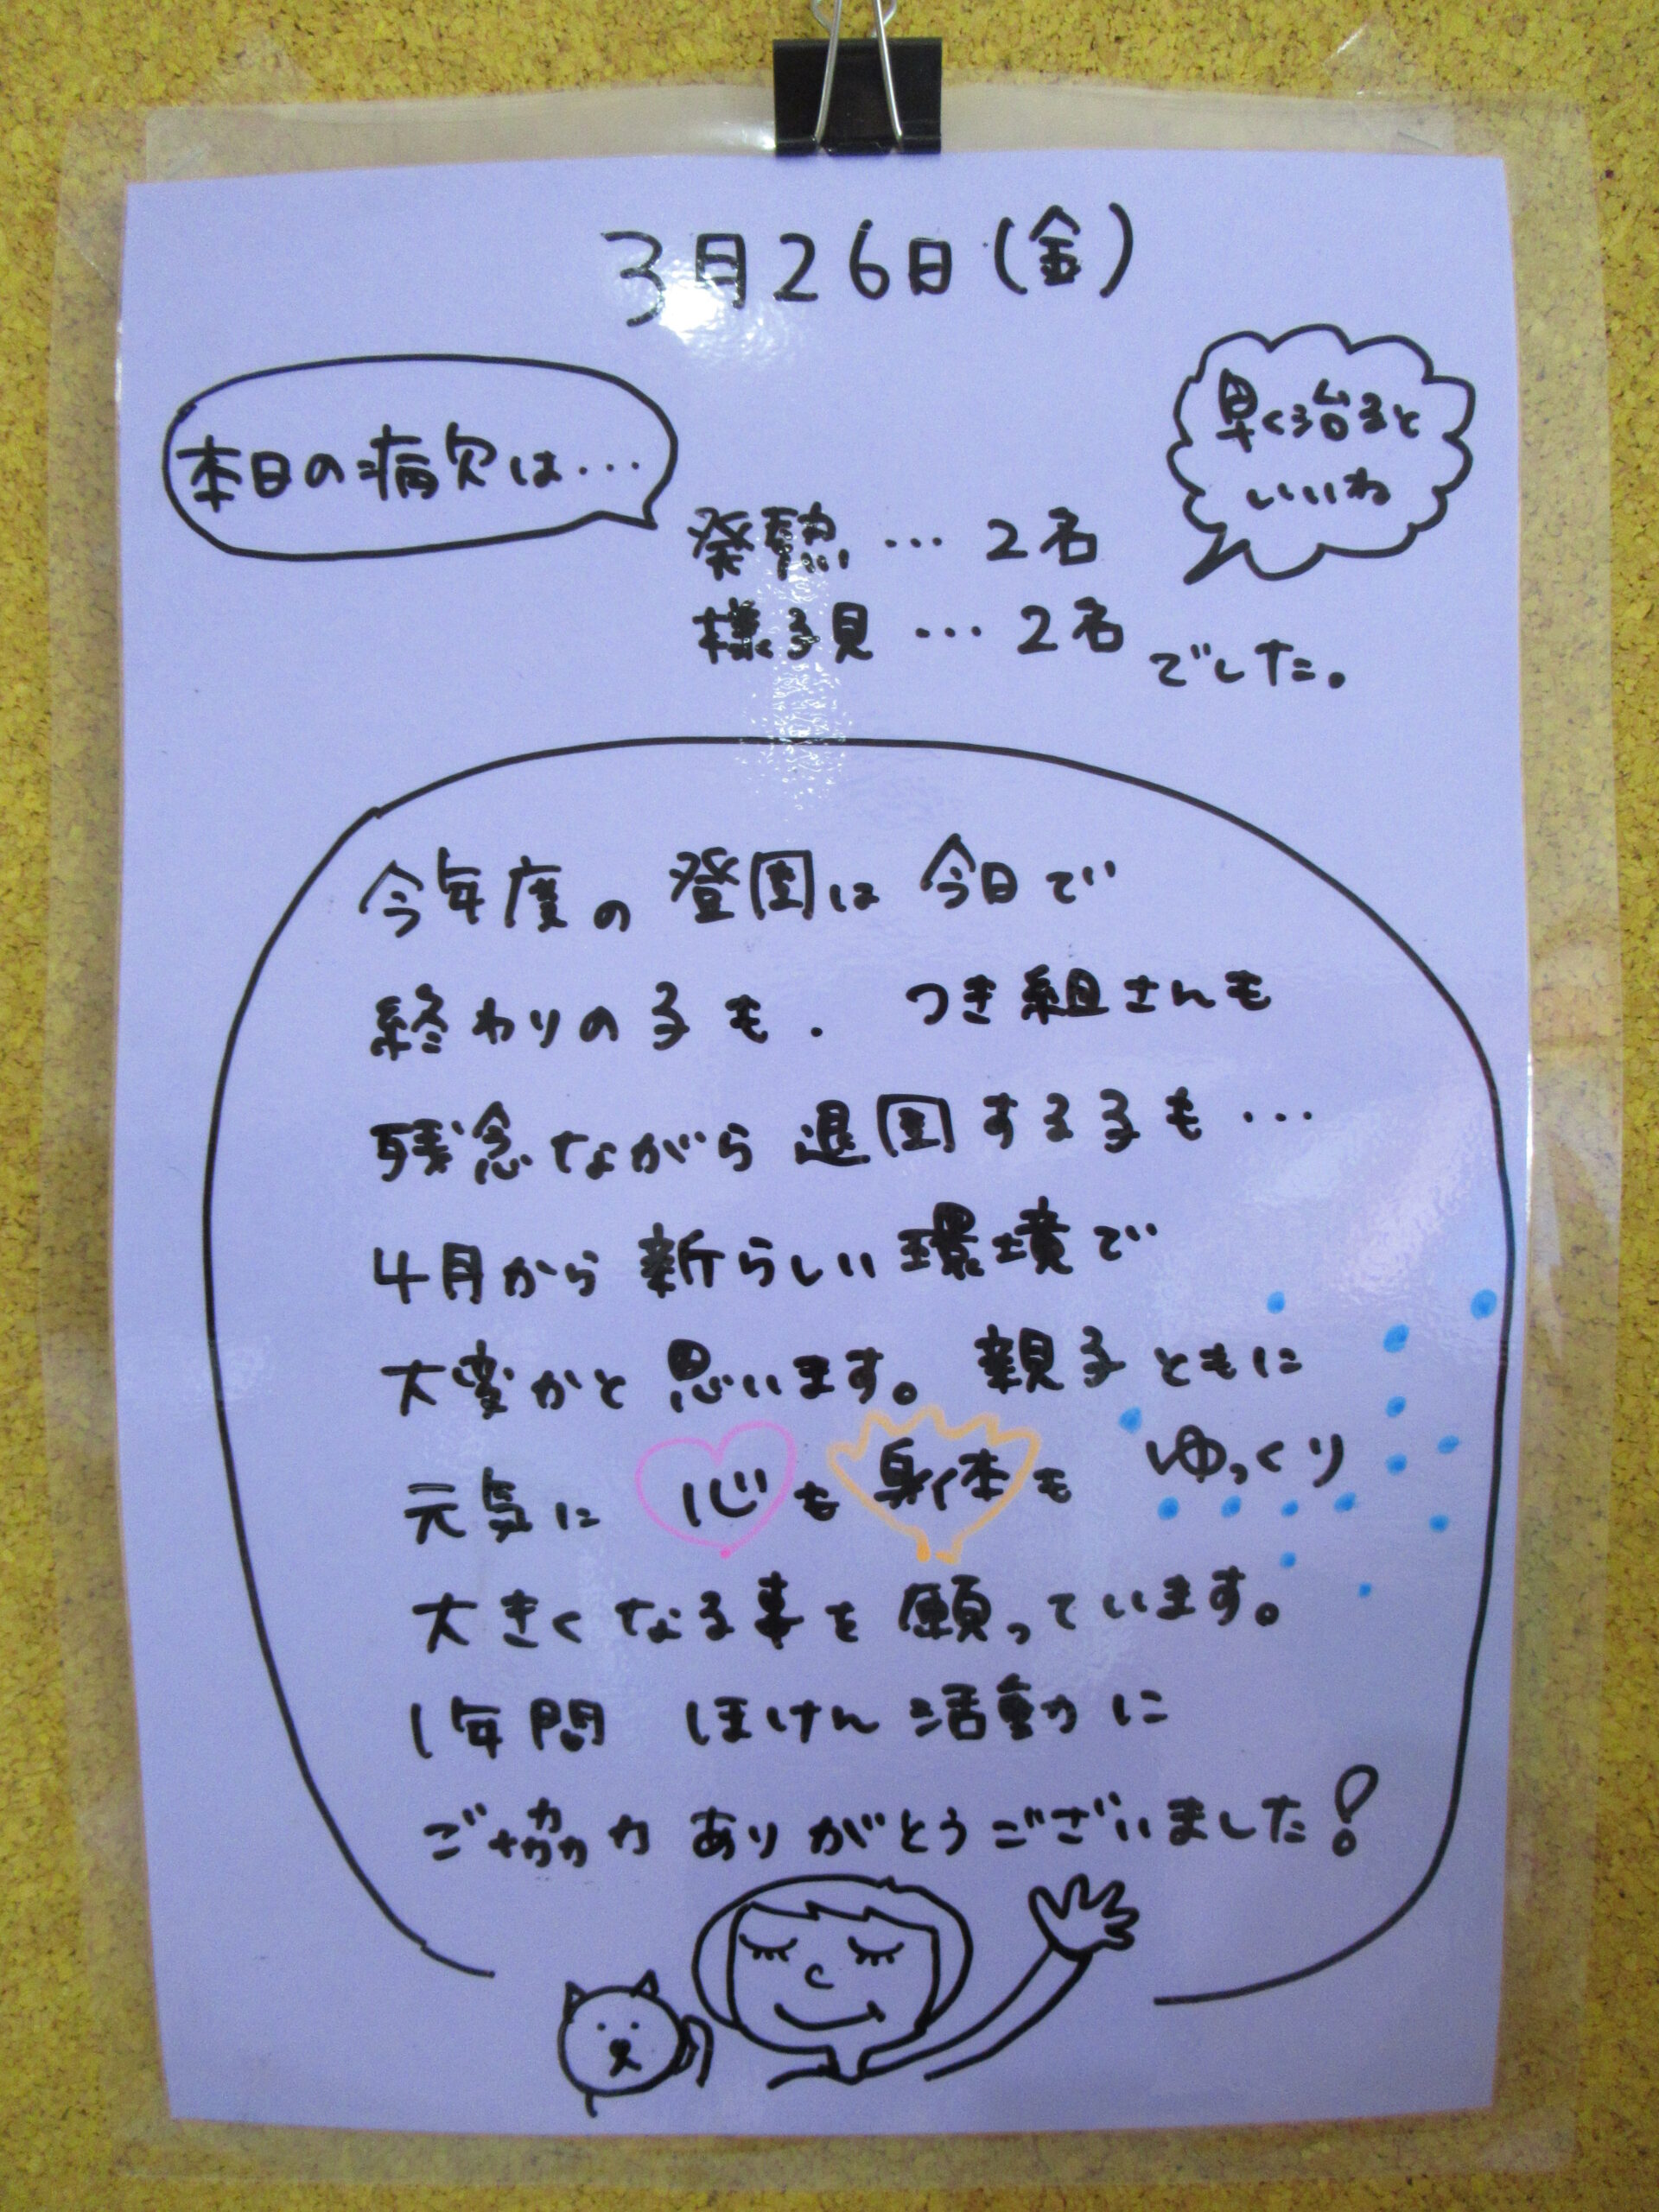 3月26日(金)
本日の病欠は…
早く治ると
いいね
発熱 … 2名
様子見 … 2名
でした。
今年度の登園は今日で
終わりの子も、つき組さんも
残念ながら退園する子も…
4月から新らしい環境で
大変かと思います。親子ともに
元気に 心も身体も ゆっくり
大きくなる事を願っています。
1年間 ほけん活動に
ご協力ありがとうございました!